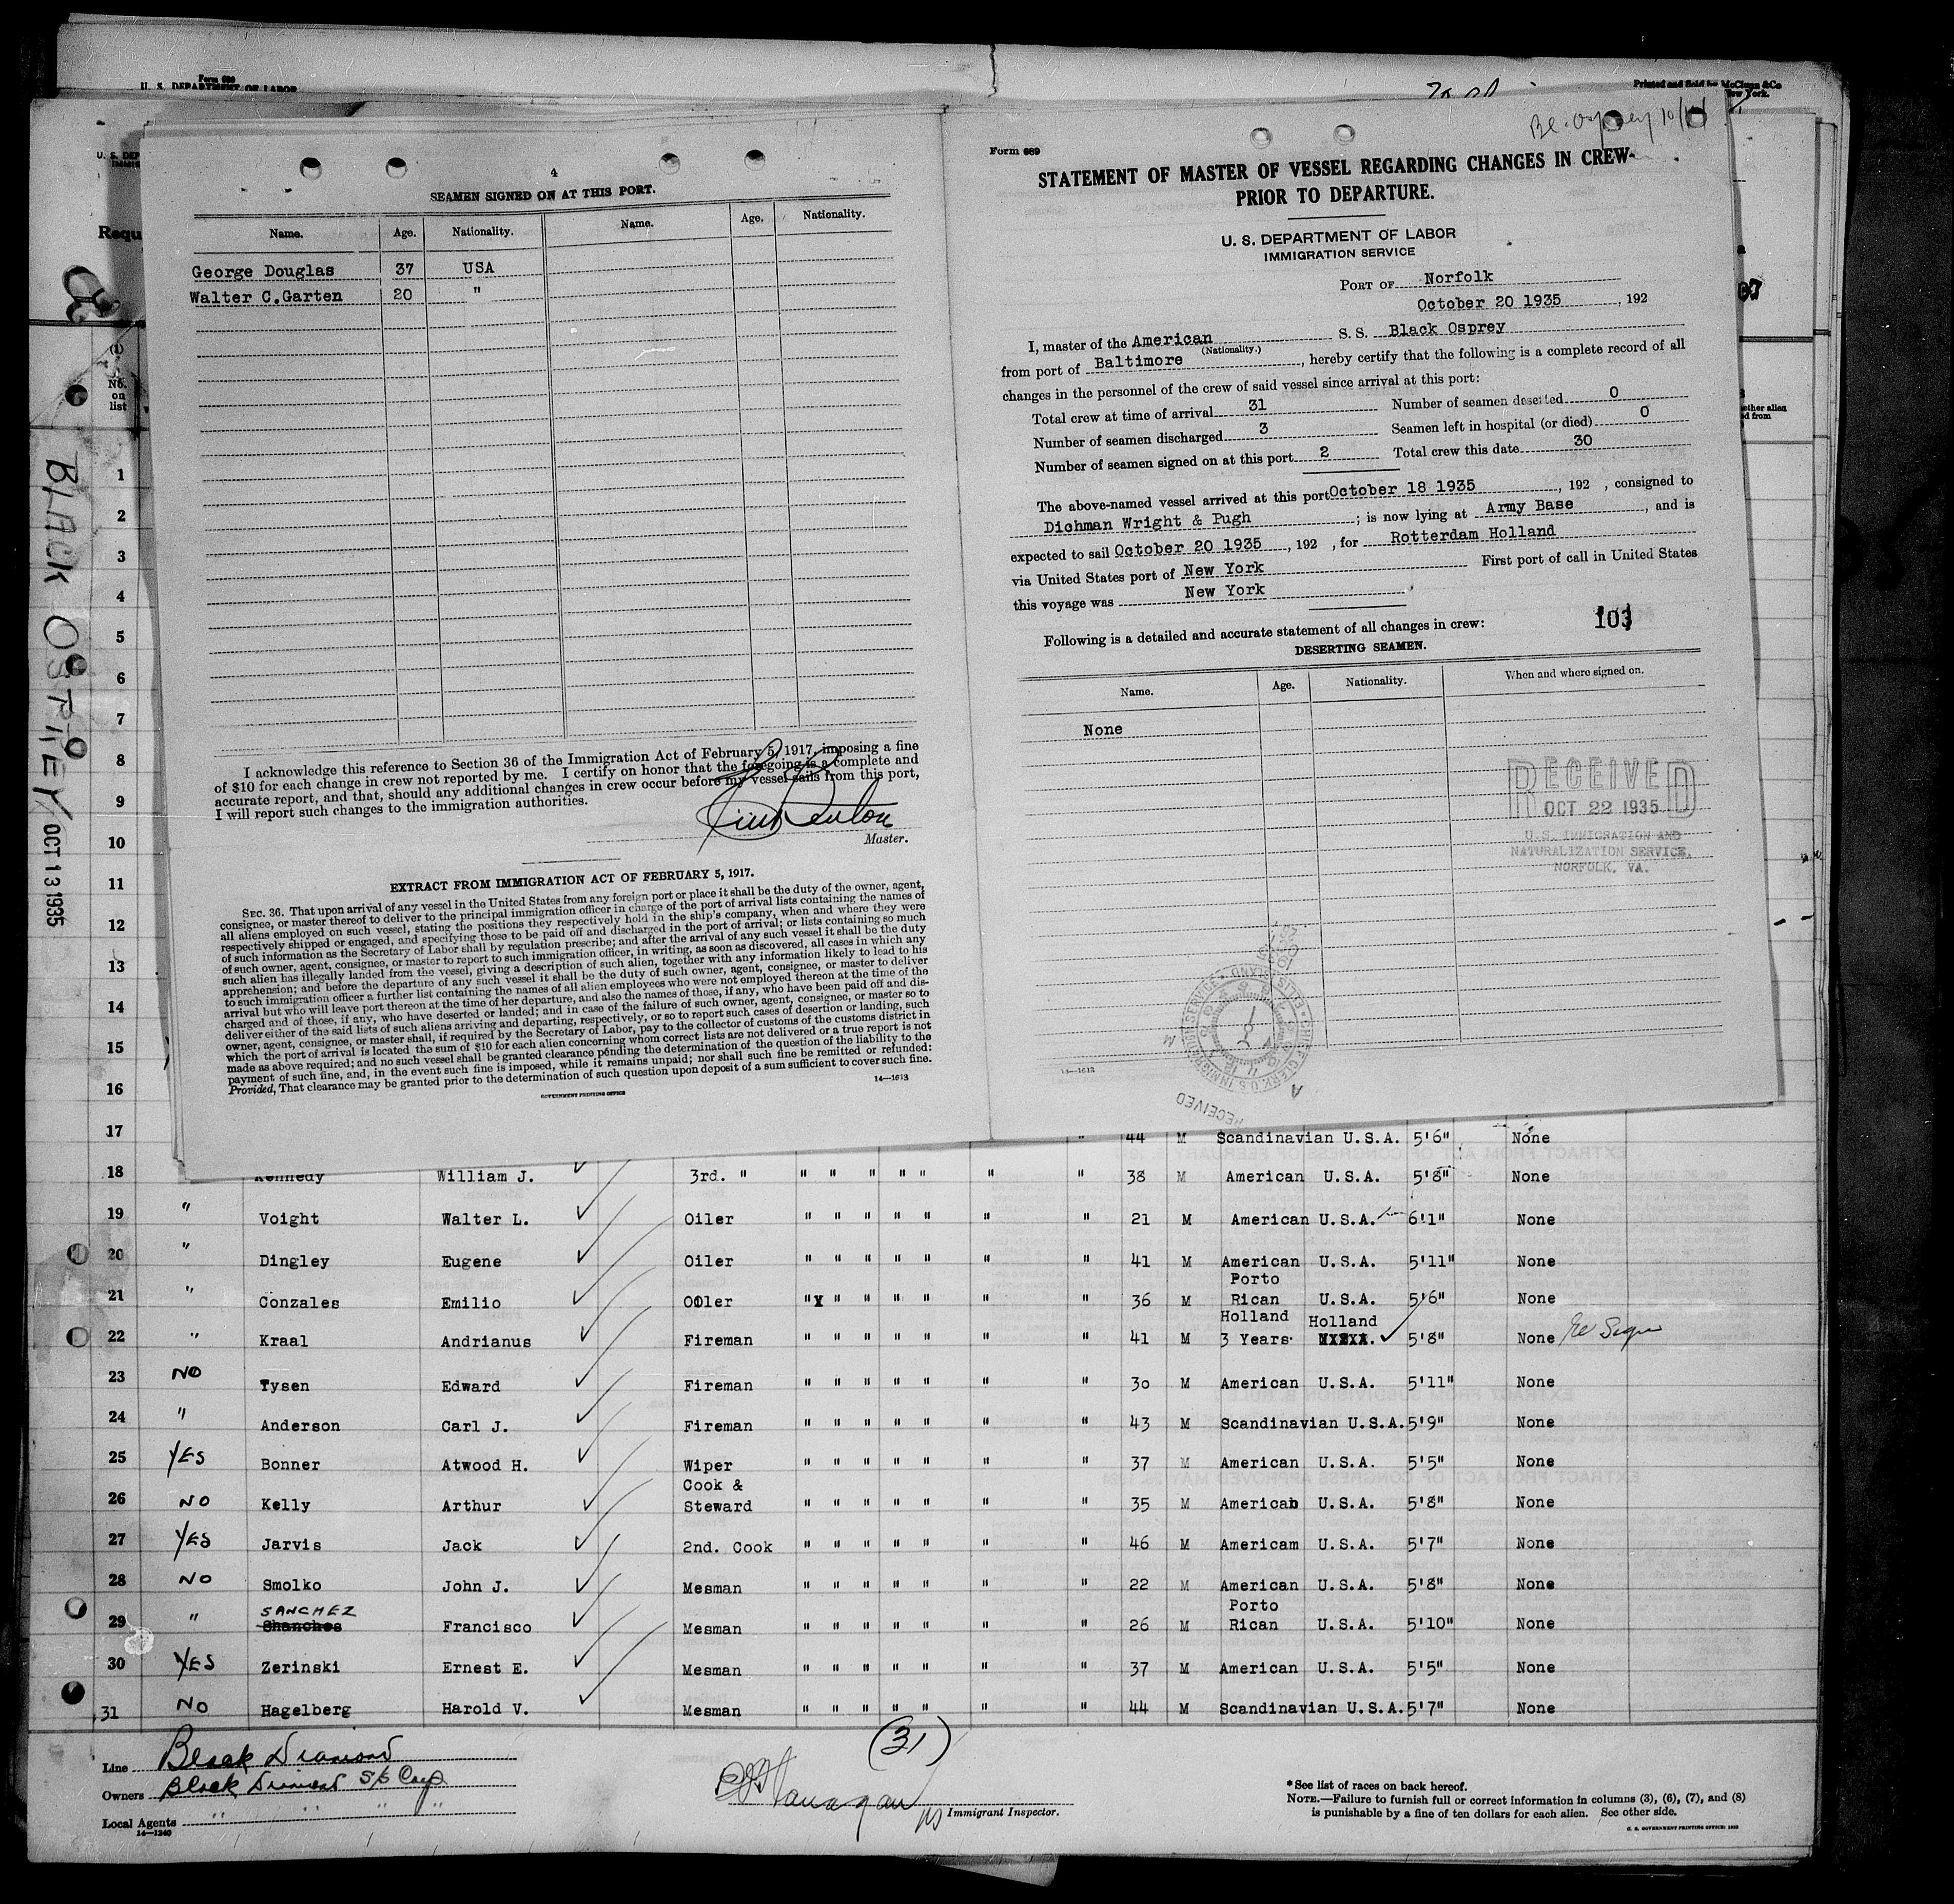 Form 689
U. S. DEPARTMENT OF LABOR
Printed and Sold by McClunn &Co
New York.
U. S. DEP
IMMIG
Requ
(1)
No.
on
list
BLACK OSPREY OCT 13 1935
4
SEAMEN SIGNED ON AT THIS PORT.
Name. Age. Nationality. Name. Age. Nationality.
George Douglas 37 USA
Walter C.Garten 20 "
I acknowledge this reference to Section 36 of the Immigration Act of February 5, 1917, imposing a fine
of $10 for each change in crew not reported by me. I certify on honor that the foregoing is a complete and
accurate report, and that, should any additional changes in crew occur before my vessel sails from this port,
I will report such changes to the immigration authorities.
Master.
EXTRACT FROM IMMIGRATION ACT OF FEBRUARY 5, 1917.
SEC. 36. That upon arrival of any vessel in the United States from any foreign port or place it shall be the duty of the owner, agent,
consignee, or master thereof to deliver to the principal immigration officer in charge of the port of arrival lists containing the names of
all aliens employed on such vessel, stating the positions they respectively hold in the ship's company, when and where they were
respectively shipped or engaged, and specifying those to be paid off and discharged in the port of arrival; or lists containing so much
of such information as the Secretary of Labor shall by regulation prescribe; and after the arrival of any such vessel it shall be the duty
of such owner, agent, consignee, or master to report to such immigration officer, in writing, as soon as discovered, all cases in which any
such alien has illegally landed from the vessel, giving a description of such alien, together with any information likely to lead to his
apprehension; and before the departure of any such vessel it shall be the duty of such owner, agent, consignee, or master to deliver
to such immigration officer a further list containing the names of all alien employees who were not employed thereon at the time of the
arrival but who will leave port thereon at the time of her departure, and also the names of those, if any, who have been paid off and dis-
charged and of those, if any, who have deserted or landed; and in case of the failure of such owner, agent, consignee, or master so to
deliver either of the said lists of such aliens arriving and departing, respectively, or so to report such cases of desertion or landing, such
owner, agent, consignee, or master shall, if required by the Secretary of Labor, pay to the collector of customs of the customs district in
which the port of arrival is located the sum of $10 for each alien concerning whom correct lists are not delivered or a true report is not
made as above required; and no such vessel shall be granted clearance pending the determination of the question of the liability to the
payment of such fine, and, in the event such fine is imposed, while it remains unpaid; nor shall such fine be remitted or refunded:
Provided, That clearance may be granted prior to the determination of such question upon deposit of a sum sufficient to cover such fine.
14—1613
GOVERNMENT PRINTING OFFICE
Form 689
STATEMENT OF MASTER OF VESSEL REGARDING CHANGES IN CREW
PRIOR TO DEPARTURE.
U. S. DEPARTMENT OF LABOR
IMMIGRATION SERVICE
PORT OF Norfolk
October 20 1935, 192
I, master of the American S. S. Black Osprey
(Nationality.)
from port of Baltimore, hereby certify that the following is a complete record of all
changes in the personnel of the crew of said vessel since arrival at this port:
Total crew at time of arrival 31 Number of seamen deserted 0
Number of seamen discharged 3 Seamen left in hospital (or died) 0
Number of seamen signed on at this port 2 Total crew this date 30
The above-named vessel arrived at this port October 18 1935, 192 , consigned to
Dichman Wright & Pugh ; is now lying at Army Base, and is
expected to sail October 20 1935, 192 , for Rotterdam Holland
via United States port of New York First port of call in United States
this voyage was New York
103
Following is a detailed and accurate statement of all changes in crew:
DESERTING SEAMEN.
Name. Age. Nationality. When and where signed on.
None
RECEIVED
OCT 22 1935
U.S. IMMIGRATION AND
NATURALIZATION SERVICE,
NORFOLK, VA.
14—1613
RECEIVED
1
2
3
4
5
6
7
8
9
10
11
12
13
14
15
16
17 " 44 M Scandinavian U.S.A. 5'6" None
18 Kennedy William J. 3rd. " " " " " " " " 38 M American U.S.A. 5'8" None
19 " Voight Walter L. Oiler " " " " " " " 21 M American U.S.A. 6'1" None
20 " Dingley Eugene Oiler " " " " " " " 41 M American U.S.A. 5'11" None
21 " Gonzales Emilio Oiler " " " " " " " 36 M Porto Rican U.S.A. 5'6" None
22 " Kraal Andrianus Fireman " " " " " " " 41 M Holland 3 Years Holland 5'8" None
23 NO Tysen Edward Fireman " " " " " " " 30 M American U.S.A. 5'11" None
24 " Anderson Carl J. Fireman " " " " " " " 43 M Scandinavian U.S.A. 5'9" None
25 YES Bonner Atwood H. Wiper " " " " " " " 37 M American U.S.A. 5'5" None
26 NO Kelly Arthur Cook & Steward " " " " " " " 35 M American U.S.A. 5'8" None
27 YES Jarvis Jack 2nd. Cook " " " " " " " 46 M Americam U.S.A. 5'7" None
28 NO Smolko John J. Mesman " " " " " " " 22 M American U.S.A. 5'8" None
29 " SANCHEZ Shanches Francisco Mesman " " " " " " " 26 M Porto Rican U.S.A. 5'10" None
30 YES Zerinski Ernest E. Mesman " " " " " " " 37 M American U.S.A. 5'5" None
31 NO Hagelberg Harold V. Mesman " " " " " " " 44 M Scandinavian U.S.A. 5'7" None
(31)
Line Black Diamond
Owners Black Diamond S/S Corp
Local Agents " " " "
14—1240
Immigrant Inspector.
*See list of races on back hereof.
NOTE.—Failure to furnish full or correct information in columns (3), (6), (7), and (8)
is punishable by a fine of ten dollars for each alien. See other side.
U. S. GOVERNMENT PRINTING OFFICE: 1933